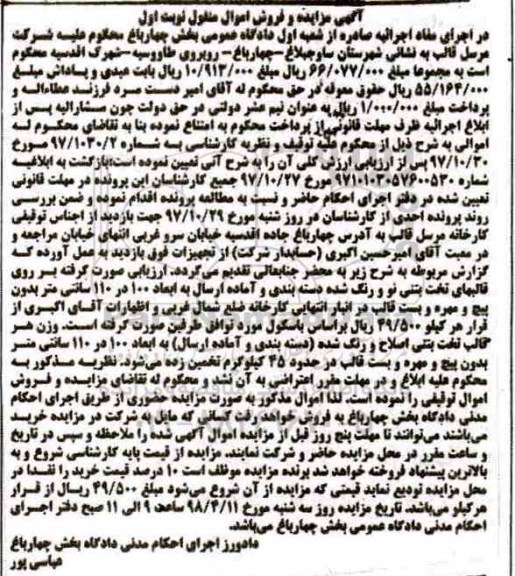 آگهی مزایده و فروش اموال منقول نوبت اول
در اجرای مفاد اجرائیه صادره از شعبه اول دادگاه عمومی بخش چهارباغ محکوم علیه شرکت
مرسل قالب به نشانی شهرستان ساوجبلاغ-چهارباغ- روبروی طاووسیه-شهرک اقدسیه محکوم
است به مجموعا مبلغ ۶۶/۰۷۷/۰۰۰ ریال مبلغ ۱۰/۹۱۳/۰۰۰ ریال بابت عیدی و پاداش مبلغ
۵۵/۱۶۴/۰۰۰ ریال حقوق معوقه در حق محکوم له آقای امیر دست مرد فرزند عطاءاله و
پرداخت مبلغ ۱/۰۰۰/۰۰۰ ریال به عنوان نیم عشر دولتی در حق دولت چون مشارالیه پس از
ابلاغ اجرائیه ظرف مهلت قانونی از پرداخت محکوم به امتناع نموده بنا به تقاضای محکوم له
اموالی به شرح ذیل از محکوم علیه توقیف و نظریه کارشناسی به شماره ۹۷/۱۰۳۰/۲ مورخ
۹۷/۱۰/۳۰ پس از ارزیابی ارزش کلی آن را به شرح آتی تعیین نموده است؛بازگشت به ابلاغیه
شماره ۹۷۱۱۰۳۰۵۷۶۰۰۵۳۰ مورخ ۹۷/۱۰/۲۷ جمیع کارشناسان این پرونده در مهلت قانونی
تعیین شده در دفتر اجرای احکام حاضر و نسبت به مطالعه پرونده اقدام نموده و ضمن بررسی
روند پرونده احدی از کارشناسان در روز شنبه مورخ ۹۷/۱۰/۲۹ جهت بازدید از اجناس توقیفی
کارخانه مرسل قالب به آدرس چهارباغ جاده اقدسیه خیابان سرو غربی انتهای خیابان مراجعه و
در معیت آقای امیرحسین اکبری (حسابدار شرکت) از تجهیزات فوق بازدید به عمل آورده که
گزارش مربوطه به شرح زیر به محضر جنابعالی تقدیم می‌گردد. ارزیابی صورت گرفته بر روی
قالبهای تخت بتنی نو و رنگ شده دسته بندی و آماده ارسال به ابعاد ۱۰۰ در ۱۱۰ سانتی متر بدون
پیچ و مهره و بست قالب در انبار انتهایی کارخانه ضلع شمال غربی و اظهارات آقای اکبری از
قرار هر کیلو ۴۹/۵۰۰ ریال براساس باسکول مورد توافق طرفین صورت گرفته است. وزن هر
قالب تخت بتنی اصلاح و رنگ شده (دسته بندی و آماده ارسال) به ابعاد ۱۰۰ در ۱۱۰ سانتی متر
بدون پیچ و مهره و بست قالب در حدود ۴۵ کیلوگرم تخمین زده می‌شود. نظریه مذکور به
محکوم علیه ابلاغ و در مهلت مقرر اعتراضی به آن نشد و محکوم له تقاضای مزایده و فروش
اموال توقیفی را نموده است. لذا اموال مذکور به صورت مزایده حضوری از طریق اجرای احکام
مدنی دادگاه بخش چهارباغ به فروش خواهد رفت کسانی که مایل به شرکت در مزایده خرید
می‌باشند می‌توانند تا مهلت پنج روز قبل از مزایده اموال آگهی شده را ملاحظه و سپس در تاریخ
و ساعت مقرر در محل مزایده حاضر و شرکت نمایند. مزایده از قیمت پایه کارشناسی شروع و به
بالاترین پیشنهاد فروخته خواهد شد برنده مزایده موظف است ۱۰ درصد قیمت خرید را نقدا در
محل مزایده تودیع نماید قیمتی که مزایده از آن شروع می‌شود مبلغ ۴۹/۵۰۰ ریال از قرار
هرکیلو می‌باشد. تاریخ مزایده روز سه شنبه مورخ ۹۸/۴/۱۱ ساعت ۹ الی ۱۱ صبح دفتر اجرای
احکام مدنی دادگاه عمومی بخش چهارباغ می‌باشد.
دادورز اجرای احکام مدنی دادگاه بخش چهارباغ
عباسی پور